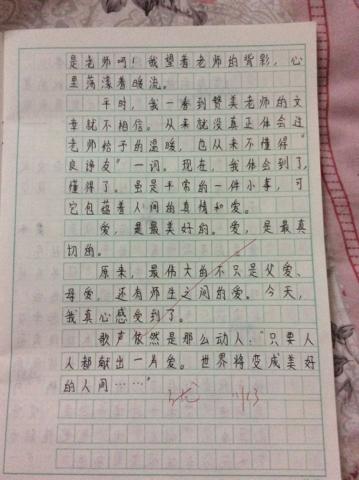 是老师吗！我望着老师的背影，心
里荡漾着暖流。
平时，我一看到赞美老师的文
章就不相信。从来就没真正体会过
老师给予的温暖，也从来不懂得“
良诤友”一词。现在，我体会到了，
懂得了。虽是平常的一件小事，可
它包蕴着人间的真情和爱。
爱，是最美好的。爱，是最真
切的。
原来，最伟大的不只是父爱、
母爱，还有师生之间的爱。今天，
我真心感受到了。
歌声依然是那么动人：“只要人
人都献出一片爱。世界将变成美好
的人间……”